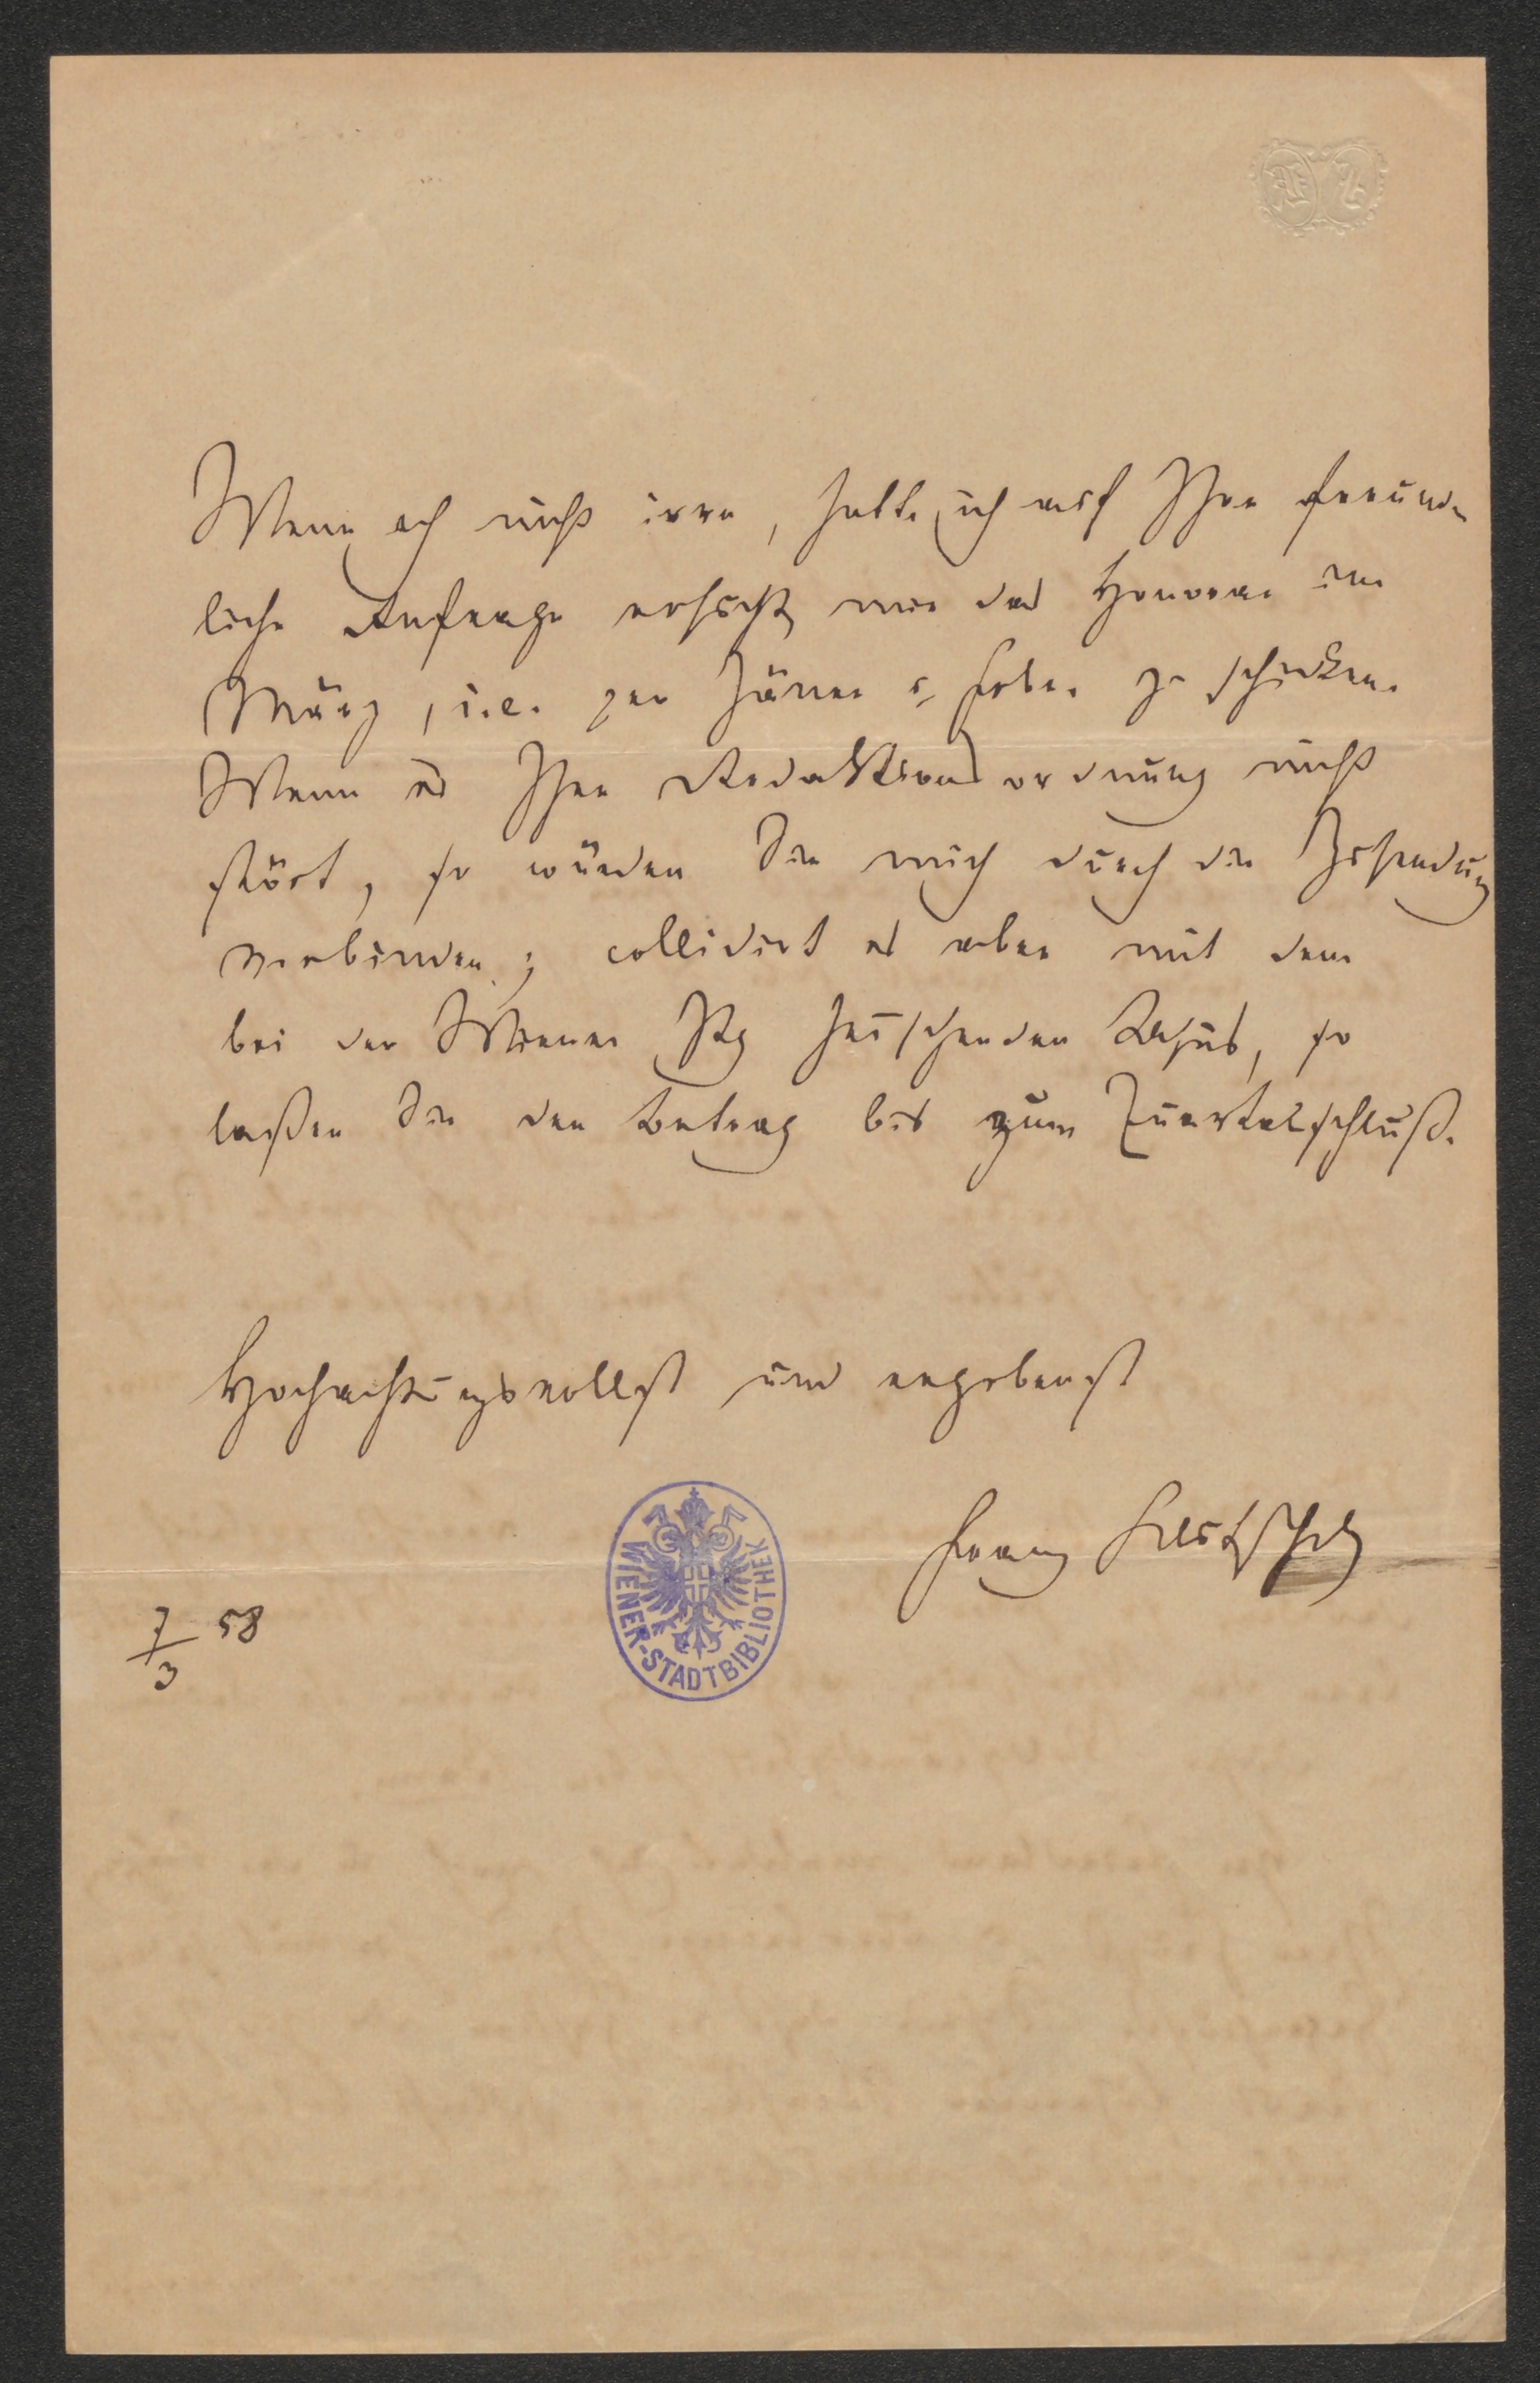 Wenn ich nicht irre, hatte ich auf Ihre freund-
liche Anfrage ersucht, mir das Honorar im
März, i.e. per Jänner u. Feber zu schicken.
Wenn es Ihre Redaktionsordnung nicht
stört, so würden Sie mich durch die Zusendung
verbinden; collidirt es aber mit dem
bei der Wiener Ztg herrschenden Usus, so
laßen Sie den Betrag bis zum Quartalschluß.
Hochachtungsvollst und ergebenst
Franz
7/3 58
WIENER-STADTBIBLIOTHEK